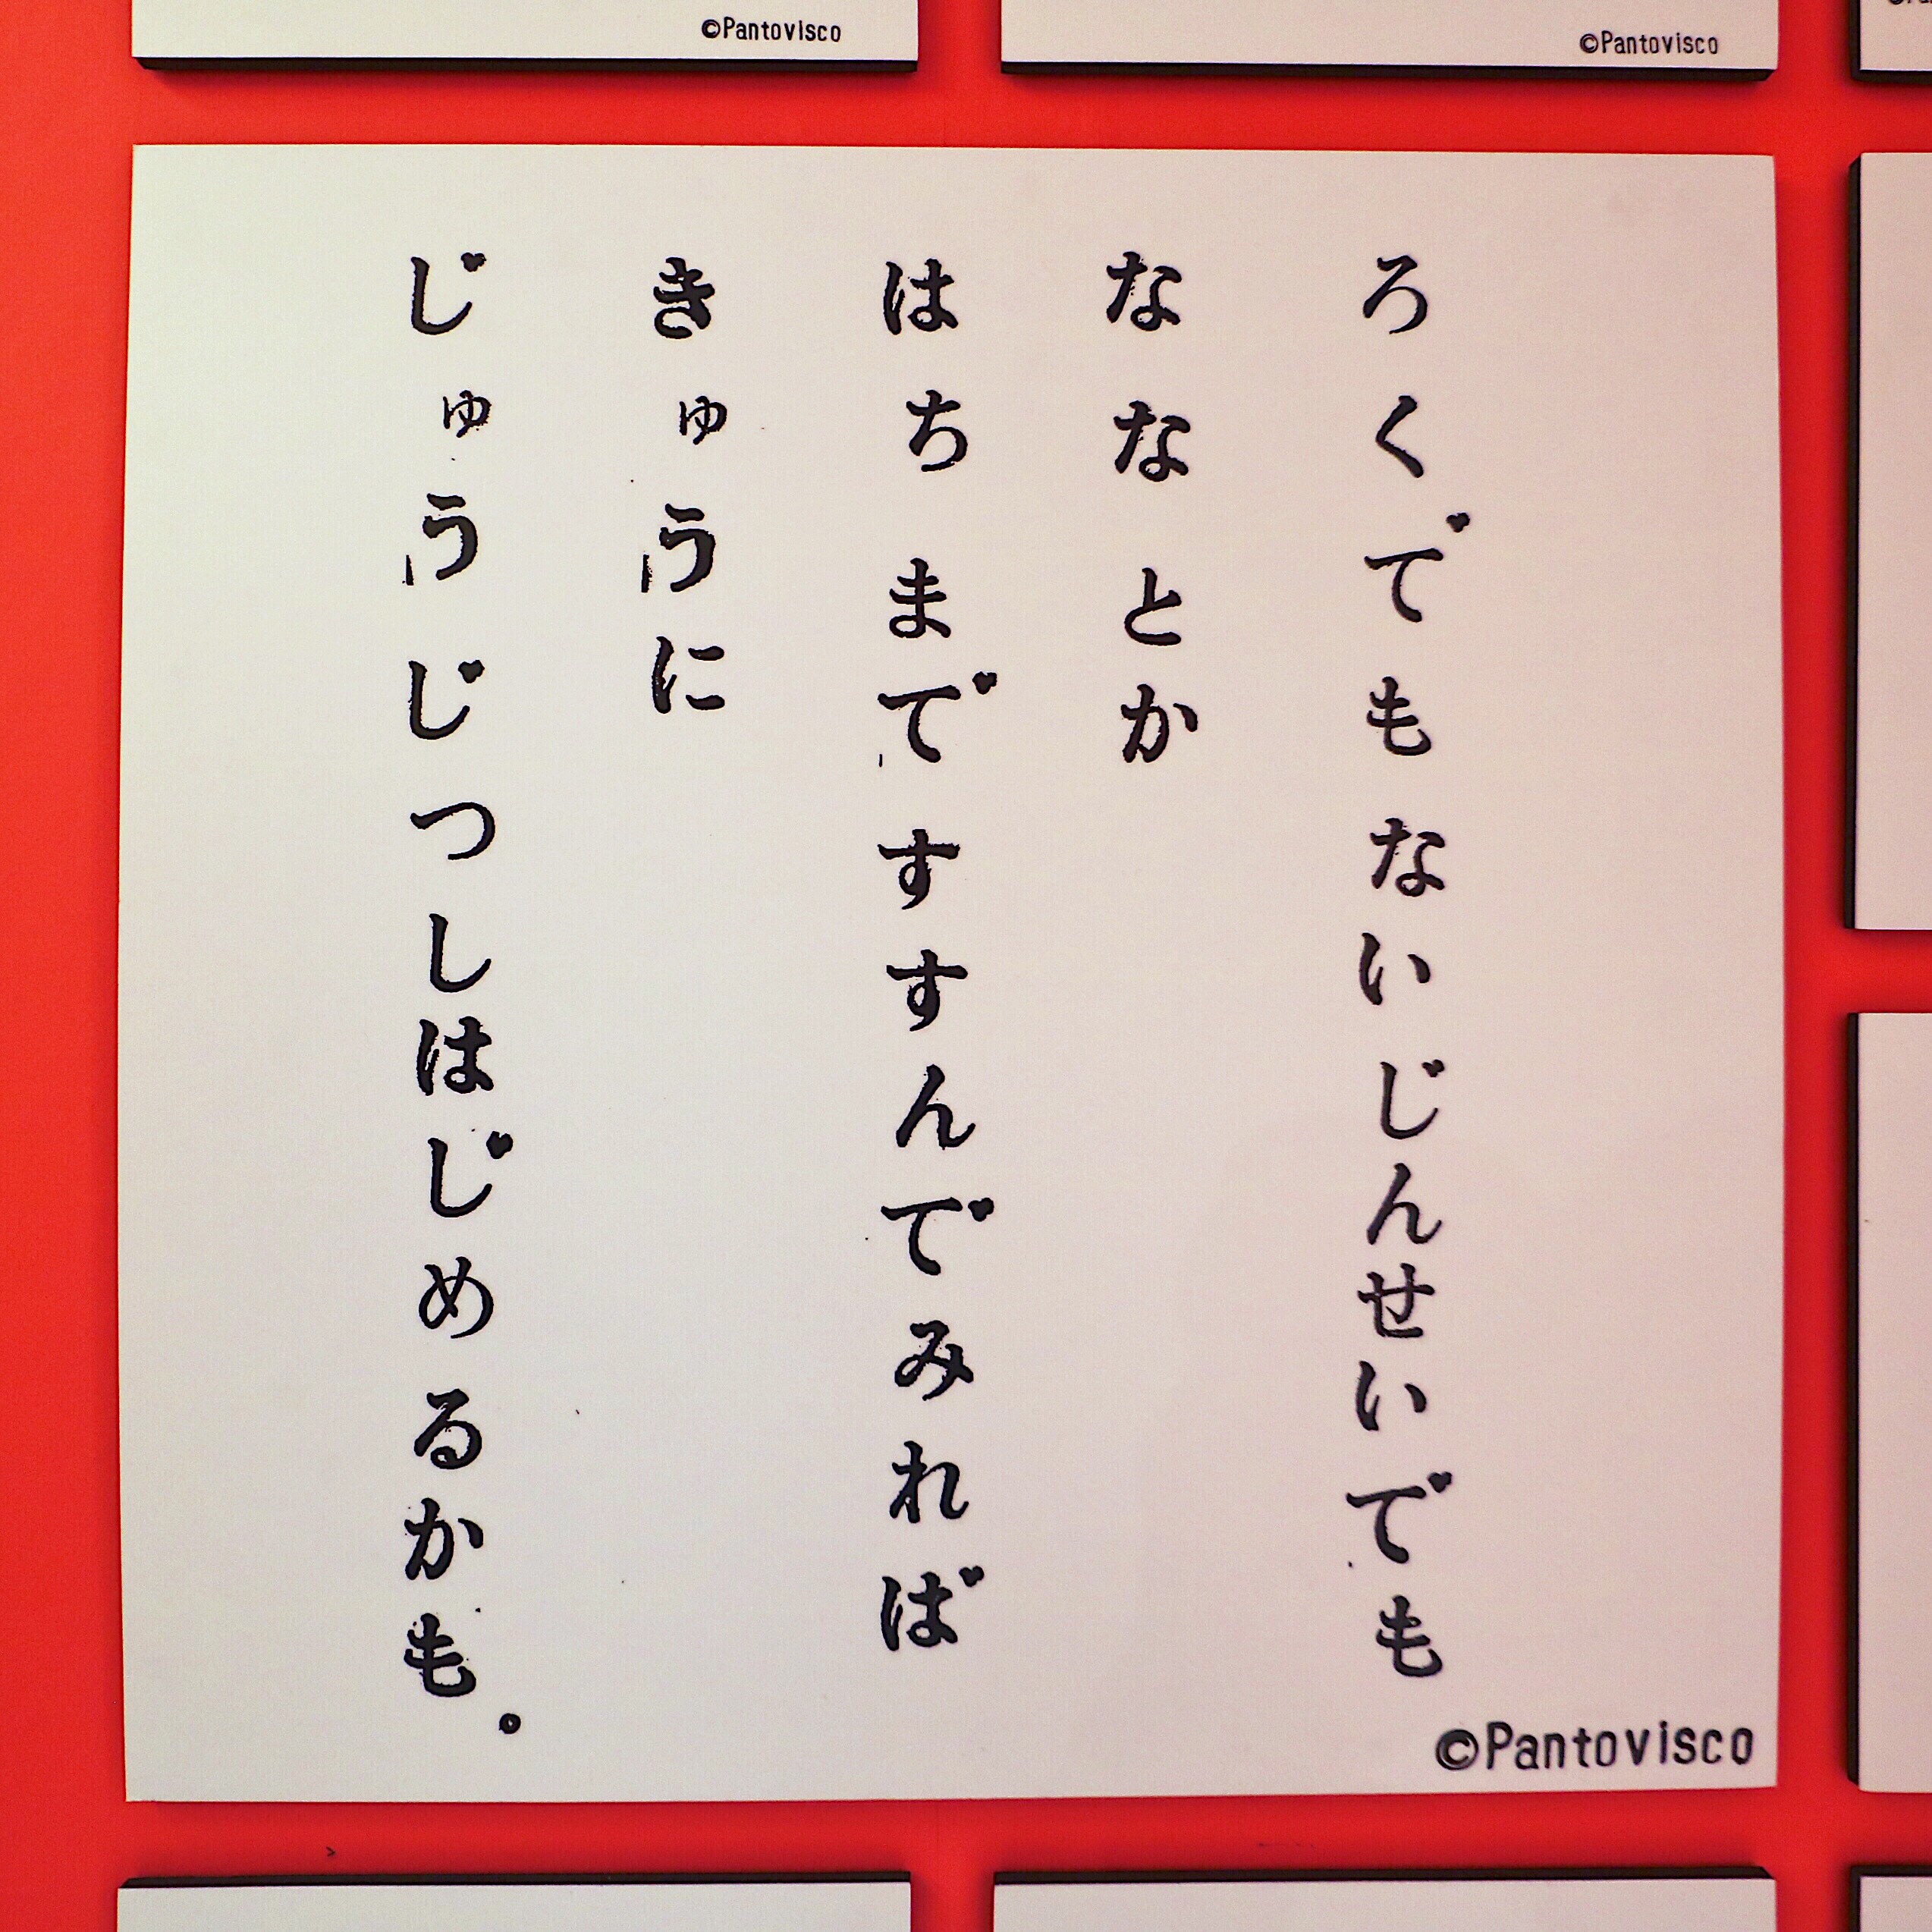 ©Pantovisco
©Pantovisco
ろくでもないじんせいでも
ななとか
はちまですすんでみれば
きゅうに
じゅうじつしはじめるかも。
©Pantovisco